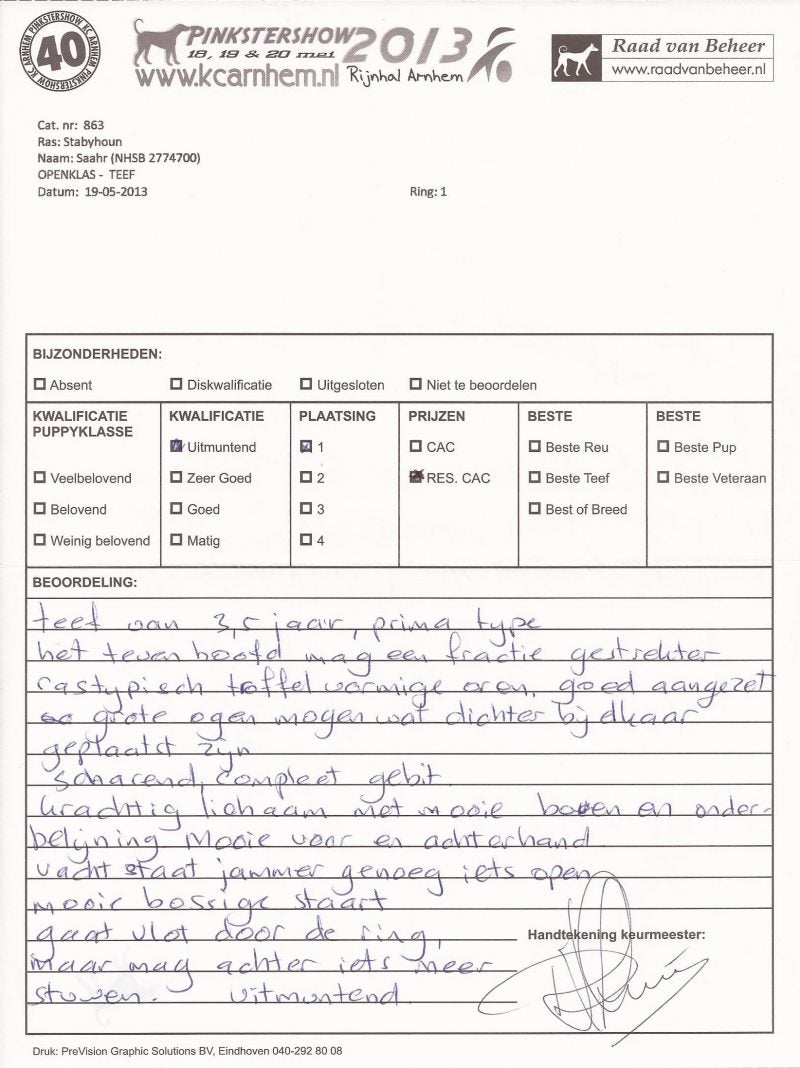 PINKSTERSHOW KC ARNHEM PINKSTERSHOW KC ARNHEM
40
PINKSTERSHOW 2013
18, 19 & 20 mei
www.kcarnhem.nl Rijnhal Arnhem
Raad van Beheer
www.raadvanbeheer.nl
Cat. nr: 863
Ras: Stabyhoun
Naam: Saahr (NHSB 2774700)
OPENKLAS - TEEF
Datum: 19-05-2013
Ring: 1
BIJZONDERHEDEN:
Absent Diskwalificatie Uitgesloten Niet te beoordelen
KWALIFICATIE PUPPYKLASSE
Veelbelovend
Belovend
Weinig belovend
KWALIFICATIE
Uitmuntend
Zeer Goed
Goed
Matig
PLAATSING
1
2
3
4
PRIJZEN
CAC
RES. CAC
BESTE
Beste Reu
Beste Teef
Best of Breed
BESTE
Beste Pup
Beste Veteraan
BEOORDELING:
teef van 3,5 jaar, prima type
het teven hoofd mag een fractie gestrekter
rastypisch troffel vormige oren, goed aangezet
grote ogen mogen wat dichter bij elkaar
geplaatst zijn
scharend, compleet gebit.
krachtig lichaam met mooie boven en onder-
belijning Mooie voor en achterhand
vacht staat jammer genoeg iets open
mooie bossige staart
gaat vlot door de ring,
maar mag achter iets meer
stuwen. uitmuntend.
Handtekening keurmeester:
Druk: PreVision Graphic Solutions BV, Eindhoven 040-292 80 08